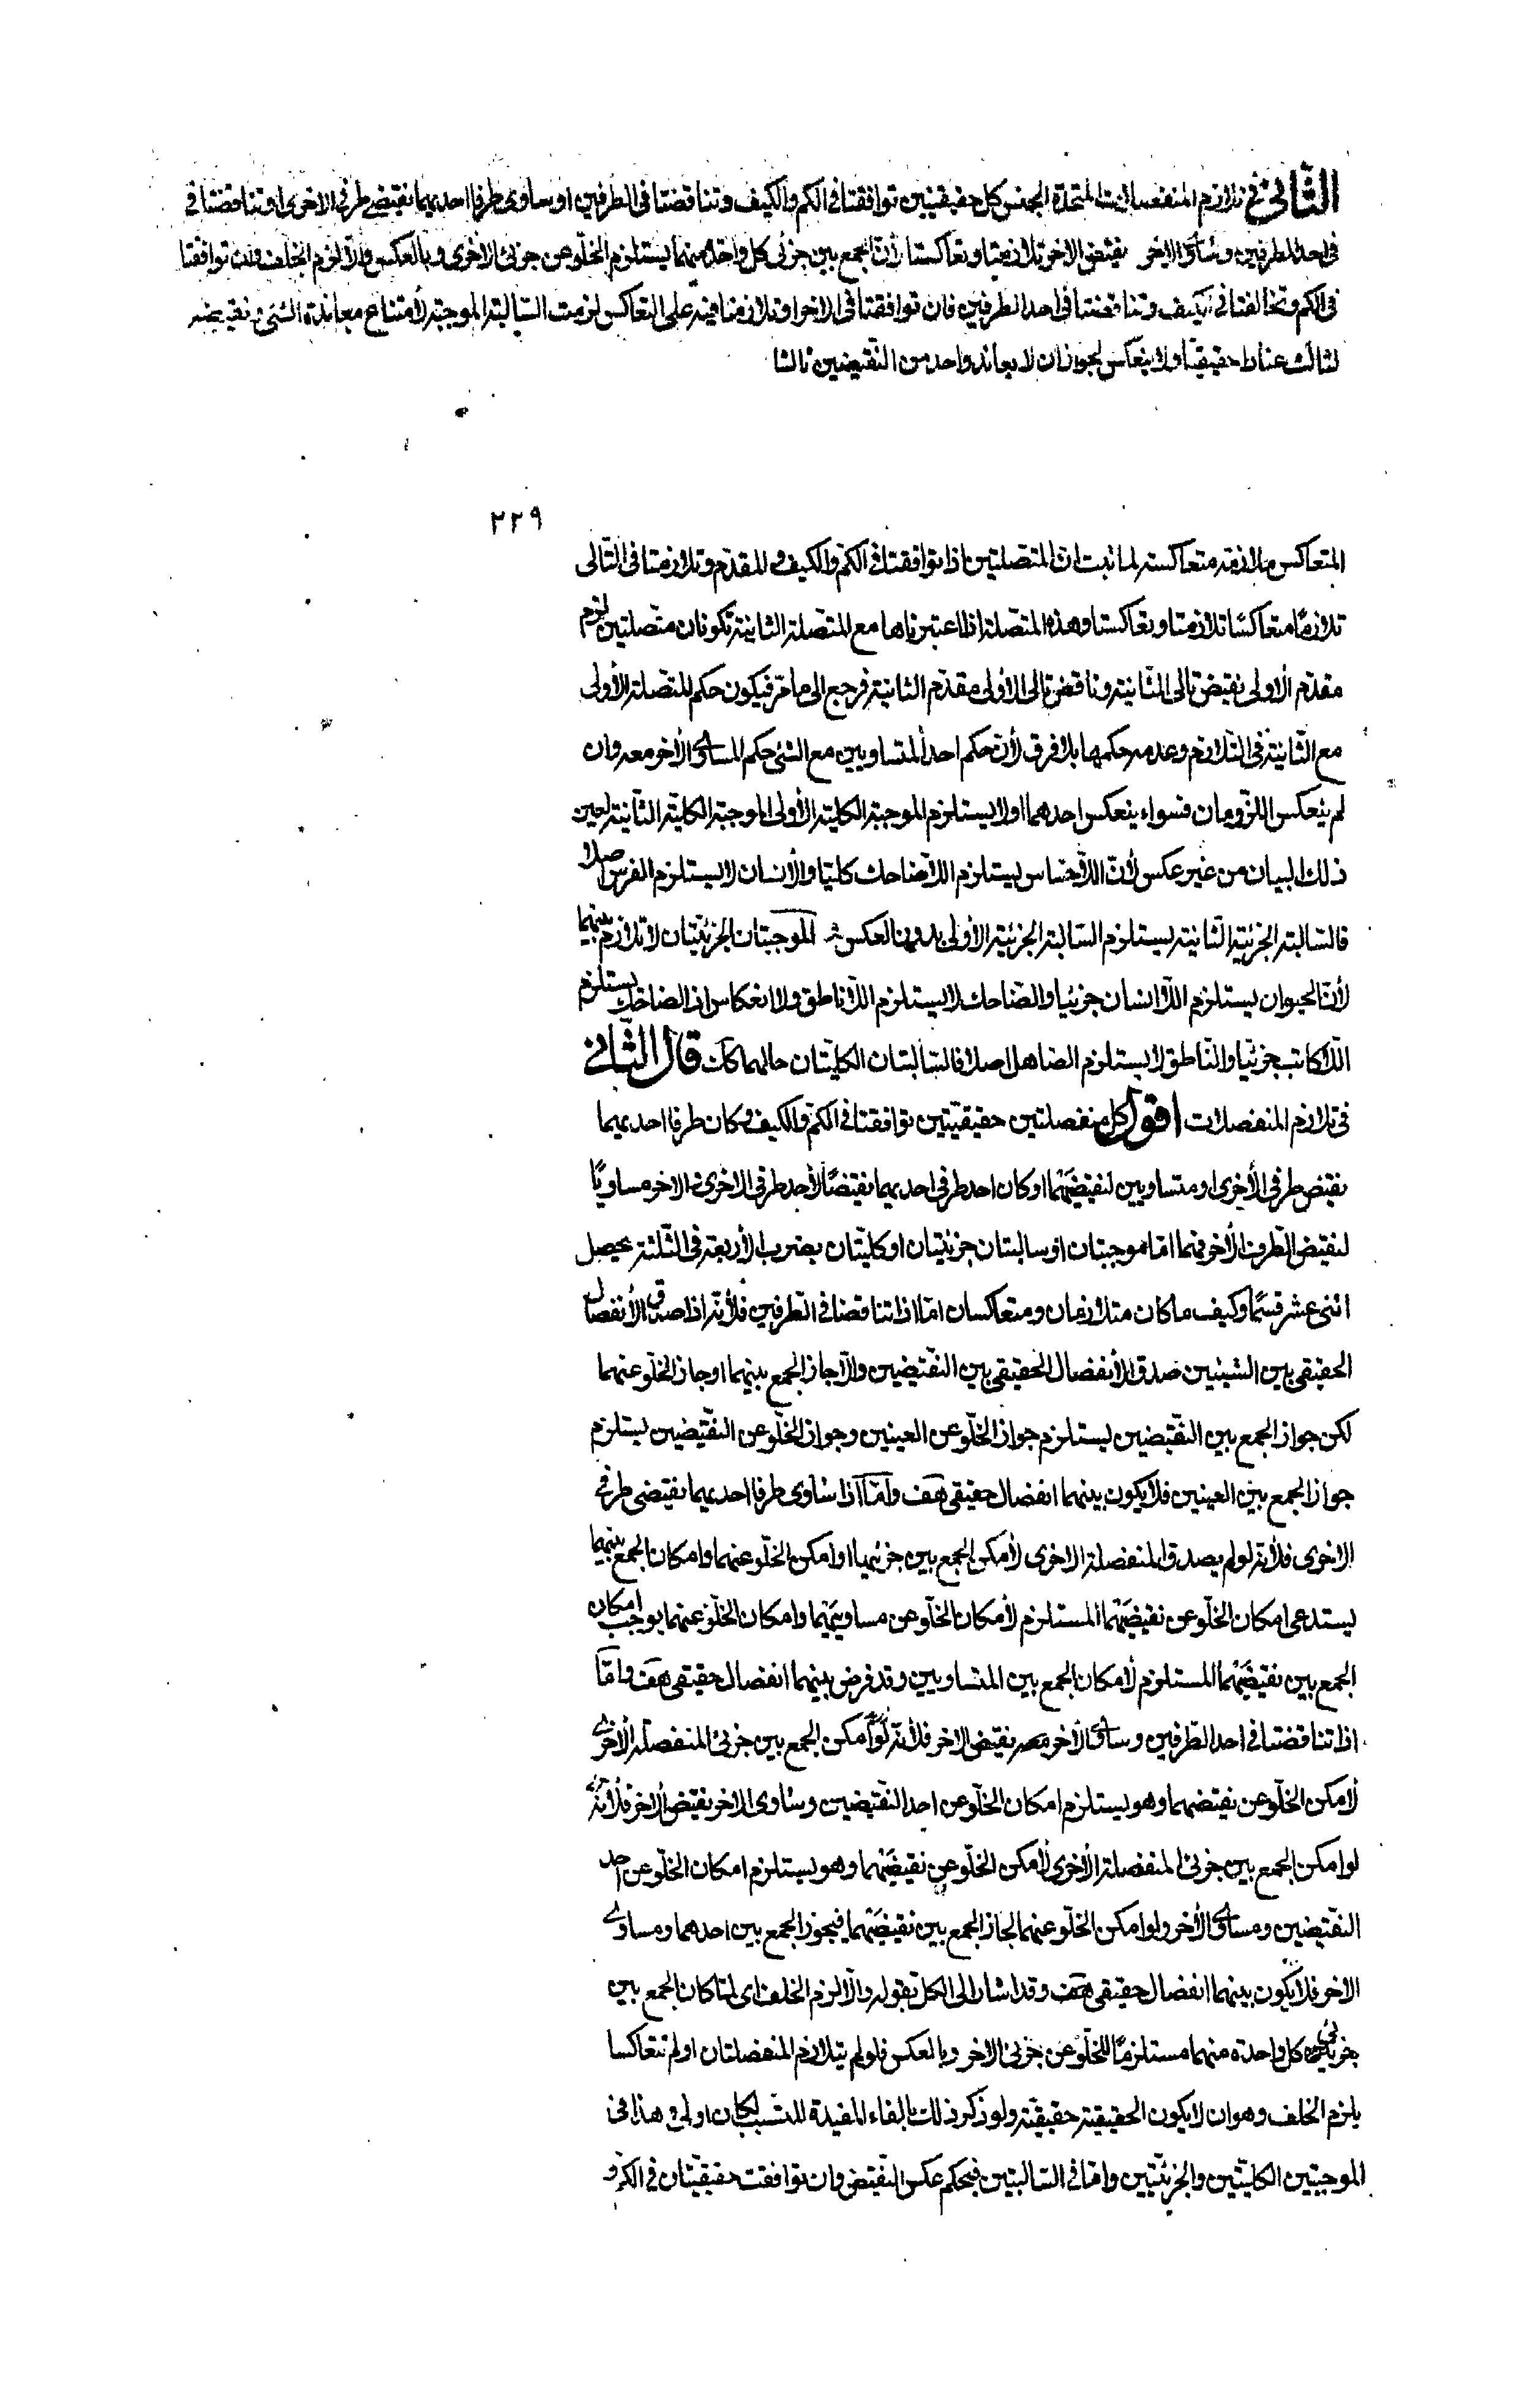 الثاني في تلازم المنفصلات المتحدة الجنس كل حقيقيتين توافقتا في الكم والكيف وتناقضتا في الطرفين او ساوى طرفا احديهما نقيضي طرفي الاخرى او تناقضتا في
في احد الطرفين وساوى الاخر نقيض الاخر تلازمتا وتعاكستا لأن الجمع بين جزئي كل واحدة منهما يستلزم الخلو عن جزئي الاخرى وبالعكس والا لزم الخلف وان توافقتا
في الكم وتخالفتا في الكيف وتناقضتا في احد الطرفين فان توافقتا في الاخر او تلازمتا فيه على التعاكس لزمت السالبة الموجبة لأمتناع معاندة الشئ ونقيضه
لثالث عنادا حقيقيا ولا ينعكس لجواز ان لا يعاند واحد من النقيضين ثالثا
٢٢٩
المتعاكس ملازمة متعاكسة لما ثبت ان المتصلتين اذا توافقتا في الكم والكيف والمقدم وتلازمتا في التالى
تلازما متعاكسا تلازمتا وتعاكستا وهذه المتصلة اذا اعتبرناها مع المتصلة الثانية تكونان متصلتين لزم
مقدم الاولى نقيض تالى الثانية وناقض تالى الأولى مقدم الثانية فرجع الى ما مر فيكون حكم المتصلة الأولى
مع الثانية في التلازم وعدمه حكمها بلا فرق لأن حكم احد المتساويين مع الشئ حكم المساوى الأخر معه وان
لم ينعكس اللزومان فسواء ينعكس احدهما اولا يستلزم الموجبة الكلية الأولى الموجبة الكلية الثانية لعين
ذلك البيان من غير عكس لأن اللاحساس يستلزم اللاضاحك كليا والأنسان لا يستلزم الفرس اصلا
فالسالبة الجزئية الثانية يستلزم السالبة الجزئية الأولى بدون العكس والموجبتان الجزئيتان لا تلازم بينهما
لأن الحيوان يستلزم اللاانسان جزئيا والضاحك لا يستلزم اللاناطق ولا انعكاس اذ الضاحك يستلزم
اللاكاتب جزئيا والناطق لا يستلزم الصاهل اصلا فالسالبتان الكليتان حالهما كك قال الثاني
في تلازم المنفصلات اقول كل منفصلتين حقيقيتين توافقتا في الكم والكيف وكان طرفا احديهما
نقيض طرفي الأخرى او متساويين لنقيضيهما او كان احد طرفي احديهما نقيضا لأحد طرفي الاخرى والاخر مساويا
لنقيض الطرف الأخر فهما اما موجبتان او سالبتان جزئيتان او كليتان بضرب الأربعة في الثلثة يحصل
اثنى عشر قسما وكيف ما كان متلازمان ومتعاكسان اما اذا تناقضا في الطرفين فلأنه اذا صدق الأنفصال
الحقيقى بين الشيئين صدق الأنفصال الحقيقى بين النقيضين والا جاز الجمع بينهما او جاز الخلو عنهما
لكن جواز الجمع بين النقيضين يستلزم جواز الخلو عن العينين وجواز الخلو عن النقيضين يستلزم
جواز الجمع بين العينين فلا يكون بينهما انفصال حقيقى هف واما اذا ساوى طرفا احديهما نقيضى طرفى
الاخرى فلأنه لو لم يصدق المنفصلة الاخرى لأمكن الجمع بين جزئيها او امكن الخلو عنهما وامكان الجمع بينهما
يستدعى امكان الخلو عن نقيضيهما المستلزم لأمكان الخلو عن مساويهما وامكان الخلو عنهما يوجب امكان
الجمع بين نقيضيهما المستلزم لأمكان الجمع بين المتساويين وقد فرض بينهما انفصال حقيقى هف واما
اذا تناقضتا في احد الطرفين وساوى الأخر نقيض الاخر فلأنه لو امكن الجمع بين جزئى المنفصلة الأخرى
لأمكن الخلو عن نقيضهما وهو يستلزم امكان الخلو عن احد النقيضين وساوى الاخر نقيض الاخر فلأنه
لو امكن الجمع بين جزئى المنفصلة الأخرى لأمكن الخلو عن نقيضيهما وهو يستلزم امكان الخلو عن احد
النقيضين ومساوى الأخر ولو امكن الخلو عنهما لجاز الجمع بين نقيضيهما فيجوز الجمع بين احدهما ومساوى
الاخر فلا يكون بينهما انفصال حقيقى هف وقد اشار الى الكل بقوله والا لزم الخلف اى لما كان الجمع بين
جزئى كل واحدة منهما مستلزما للخلو عن جزئى الاخر وبالعكس فلو لم يتلازم المنفصلتان او لم تتعاكسا
يلزم الخلف وهو ان لا يكون الحقيقية حقيقية ولو ذكر ذلك بالفاء المفيدة للتسبب لكان اولى هذا فى
الموجبتين الكليتين والجزئيتين واما في السالبتين فبحكم عكس النقيض وان توافقت حقيقيتان في الكم و